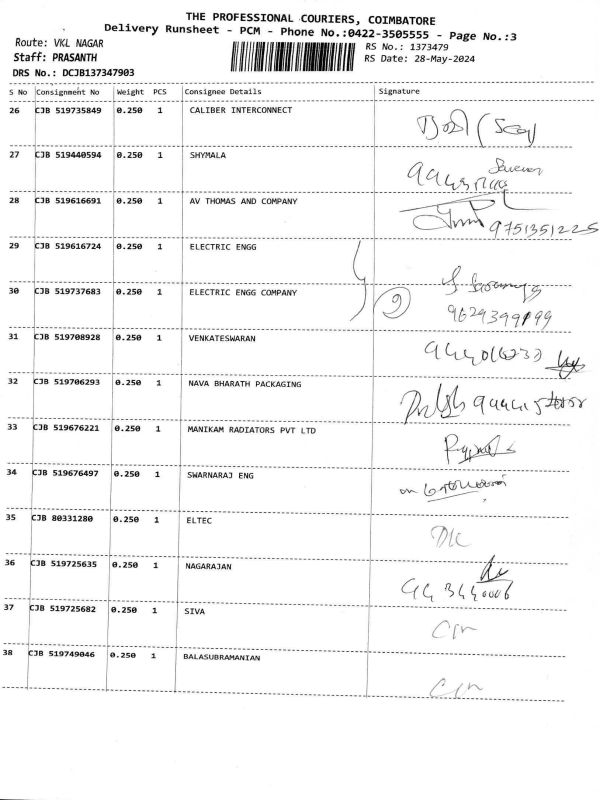 THE PROFESSIONAL COURIERS, COIMBATORE
Delivery Runsheet - PCM - Phone No.:0422-3505555 - Page No.:3
Route: VKL NAGAR RS No.: 1373479
Staff: PRASANTH RS Date: 28-May-2024
DRS No.: DCJB137347903
S No Consignment No Weight PCS Consignee Details Signature
26 CJB 519735849 0.250 1 CALIBER INTERCONNECT
27 CJB 519440594 0.250 1 SHYMALA
28 CJB 519616691 0.250 1 AV THOMAS AND COMPANY
9751351225
29 CJB 519616724 0.250 1 ELECTRIC ENGG
30 CJB 519737683 0.250 1 ELECTRIC ENGG COMPANY
9629399199
31 CJB 519708928 0.250 1 VENKATESWARAN
32 CJB 519706293 0.250 1 NAVA BHARATH PACKAGING
33 CJB 519676221 0.250 1 MANIKAM RADIATORS PVT LTD
34 CJB 519676497 0.250 1 SWARNARAJ ENG
35 CJB 80331280 0.250 1 ELTEC
36 CJB 519725635 0.250 1 NAGARAJAN
37 CJB 519725682 0.250 1 SIVA
38 CJB 519749046 0.250 1 BALASUBRAMANIAN